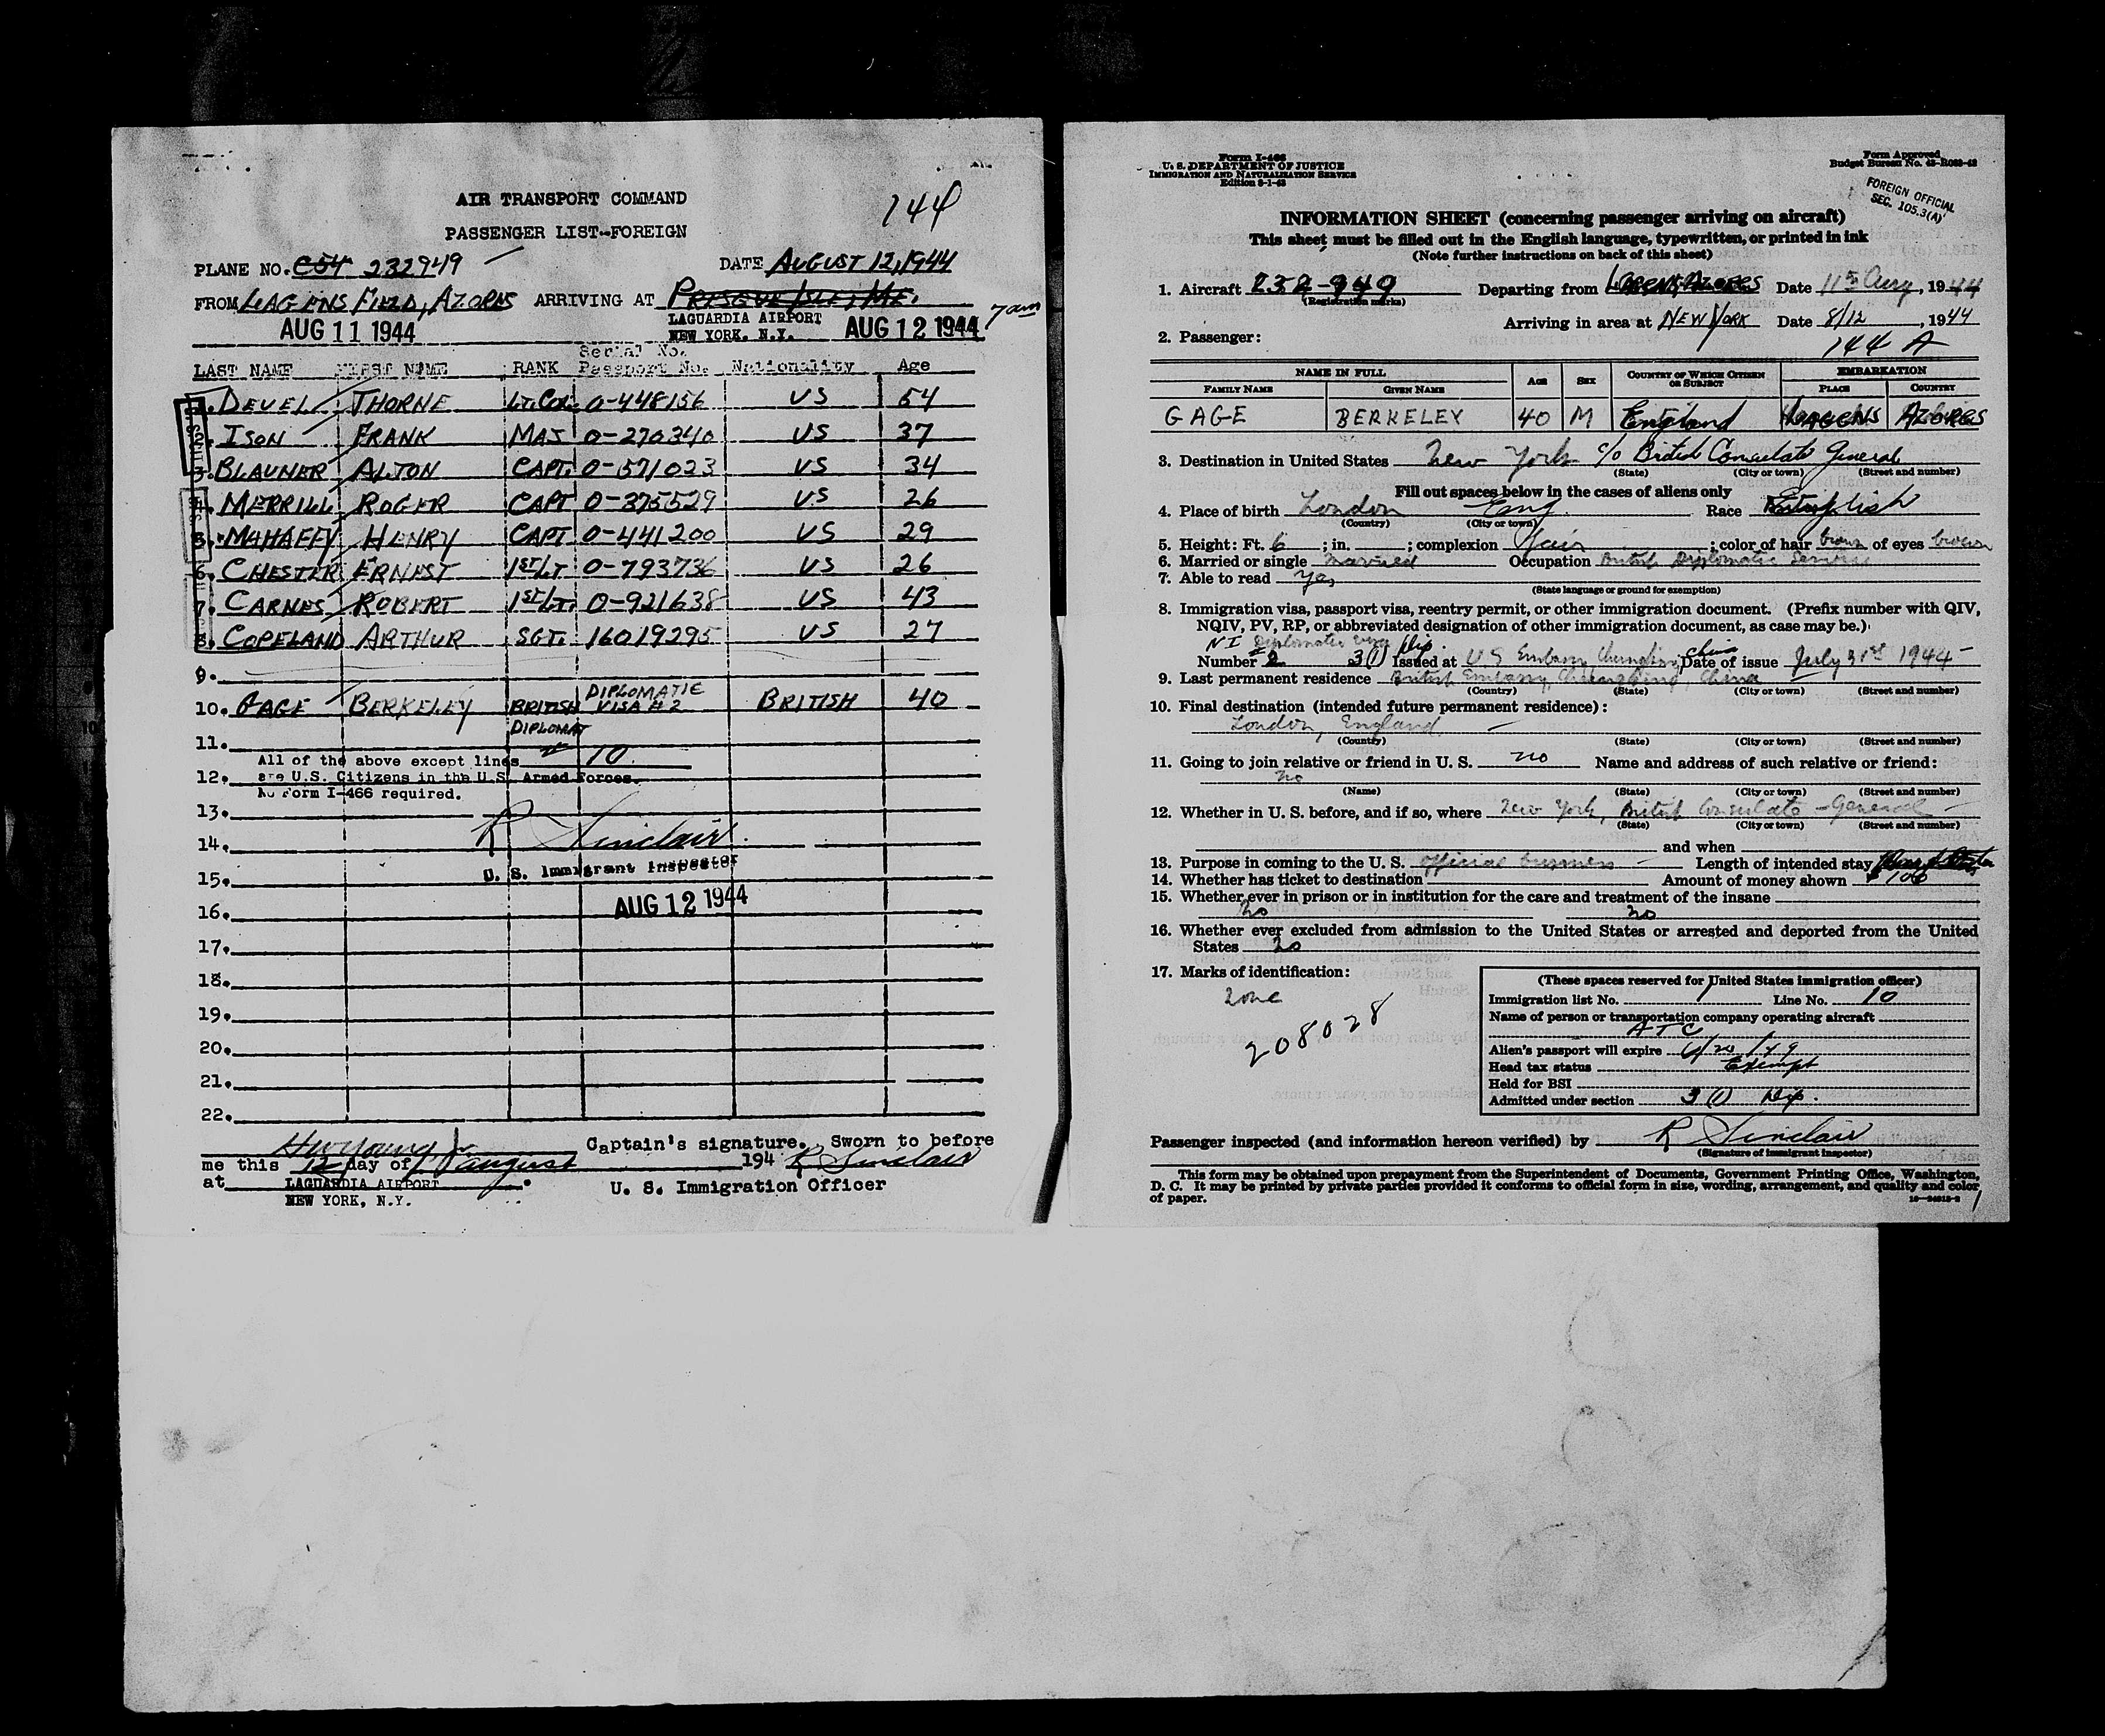 AIR TRANSPORT COMMAND
144
PASSENGER LIST--FOREIGN
PLANE NO. C54 232949 DATE AUGUST 12, 1944
FROM LAGENS FIELD, AZORES ARRIVING AT PRESQUE ISLE, ME. 7am
AUG 11 1944 LAGUARDIA AIRPORT NEW YORK, N.Y. AUG 12 1944
LAST NAME FIRST NAME RANK Serial No. Passport No. Nationality Age
1. DEUEL THORNE LT. COL. O-448156 US 54
2. ISON FRANK MAJ O-270340 US 37
3. BLAUNER ALTON CAPT. O-571023 US 34
4. MERRILL ROGER CAPT O-375529 US 26
5. MAHAFFY HENRY CAPT O-441200 US 29
6. CHESTER ERNEST 1ST LT O-793736 US 26
7. CARNES ROBERT 1ST LT. O-921638 US 43
8. COPELAND ARTHUR SGT. 16019295 US 27
9.
10. GAGE BERKELEY BRITISH DIPLOMAT DIPLOMATIC VISA #2 BRITISH 40
11.
All of the above except lines 10.
12. are U.S. Citizens in the U.S. Armed Forces.
No Form I-466 required.
13.
14. R Sinclair
U. S. Immigrant Inspector
15.
AUG 12 1944
16.
17.
18.
19.
20.
21.
22.
HW Young Jr Captain's signature. Sworn to before
me this 12 day of august 194 R Sinclair
at LAGUARDIA AIRPORT
NEW YORK, N.Y. U. S. Immigration Officer
Form I-466
U. S. DEPARTMENT OF JUSTICE
IMMIGRATION AND NATURALIZATION SERVICE
Edition 8-1-43
Form Approved
Budget Bureau No. 43-R083-42
FOREIGN OFFICIAL
SEC. 105.3(A)
INFORMATION SHEET (concerning passenger arriving on aircraft)
This sheet must be filled out in the English language, typewritten, or printed in ink
(Note further instructions on back of this sheet)
1. Aircraft 232-949 Departing from LAGENS, AZORES Date 11th Aug, 1944
(Registration marks)
Arriving in area at NEW YORK Date 8/12, 1944
2. Passenger: 144 A
NAME IN FULL AGE SEX COUNTRY OF WHICH CITIZEN OR SUBJECT EMBARKATION
FAMILY NAME GIVEN NAME PLACE COUNTRY
GAGE BERKELEY 40 M England LAGENS AZORES
3. Destination in United States New York c/o British Consulate General
(State) (City or town) (Street and number)
Fill out spaces below in the cases of aliens only
4. Place of birth London Eng. Race English
(Country) (City or town)
5. Height: Ft. 6; in. ; complexion fair; color of hair brown of eyes brown
6. Married or single married Occupation British Diplomatic Service
7. Able to read Yes
(State language or ground for exemption)
8. Immigration visa, passport visa, reentry permit, or other immigration document. (Prefix number with QIV,
NQIV, PV, RP, or abbreviated designation of other immigration document, as case may be.)
NI Diplomatic Visa Dip.
Number 2 3(1) Issued at US Embassy, Chungking China Date of issue July 31st 1944
9. Last permanent residence British Embassy, Chungking, China
(Country) (State) (City or town) (Street and number)
10. Final destination (intended future permanent residence):
London, England
(Country) (State) (City or town) (Street and number)
11. Going to join relative or friend in U. S. no Name and address of such relative or friend:
no
(Name) (State) (City or town) (Street and number)
12. Whether in U. S. before, and if so, where New York, British Consulate-General
(State) (City or town) (Street and number)
and when
13. Purpose in coming to the U. S. official business Length of intended stay
14. Whether has ticket to destination Amount of money shown $100
15. Whether ever in prison or in institution for the care and treatment of the insane
no no
16. Whether ever excluded from admission to the United States or arrested and deported from the United
States no
17. Marks of identification:
none
208028
(These spaces reserved for United States immigration officer)
Immigration list No. 1 Line No. 10
Name of person or transportation company operating aircraft
ATC
Alien's passport will expire 6/20/49
Head tax status Exempt
Held for BSI
Admitted under section 3 (1) Dip.
Passenger inspected (and information hereon verified) by R Sinclair
(Signature of immigrant inspector)
This form may be obtained upon prepayment from the Superintendent of Documents, Government Printing Office, Washington,
D. C. It may be printed by private parties provided it conforms to official form in size, wording, arrangement, and quality and color
of paper.